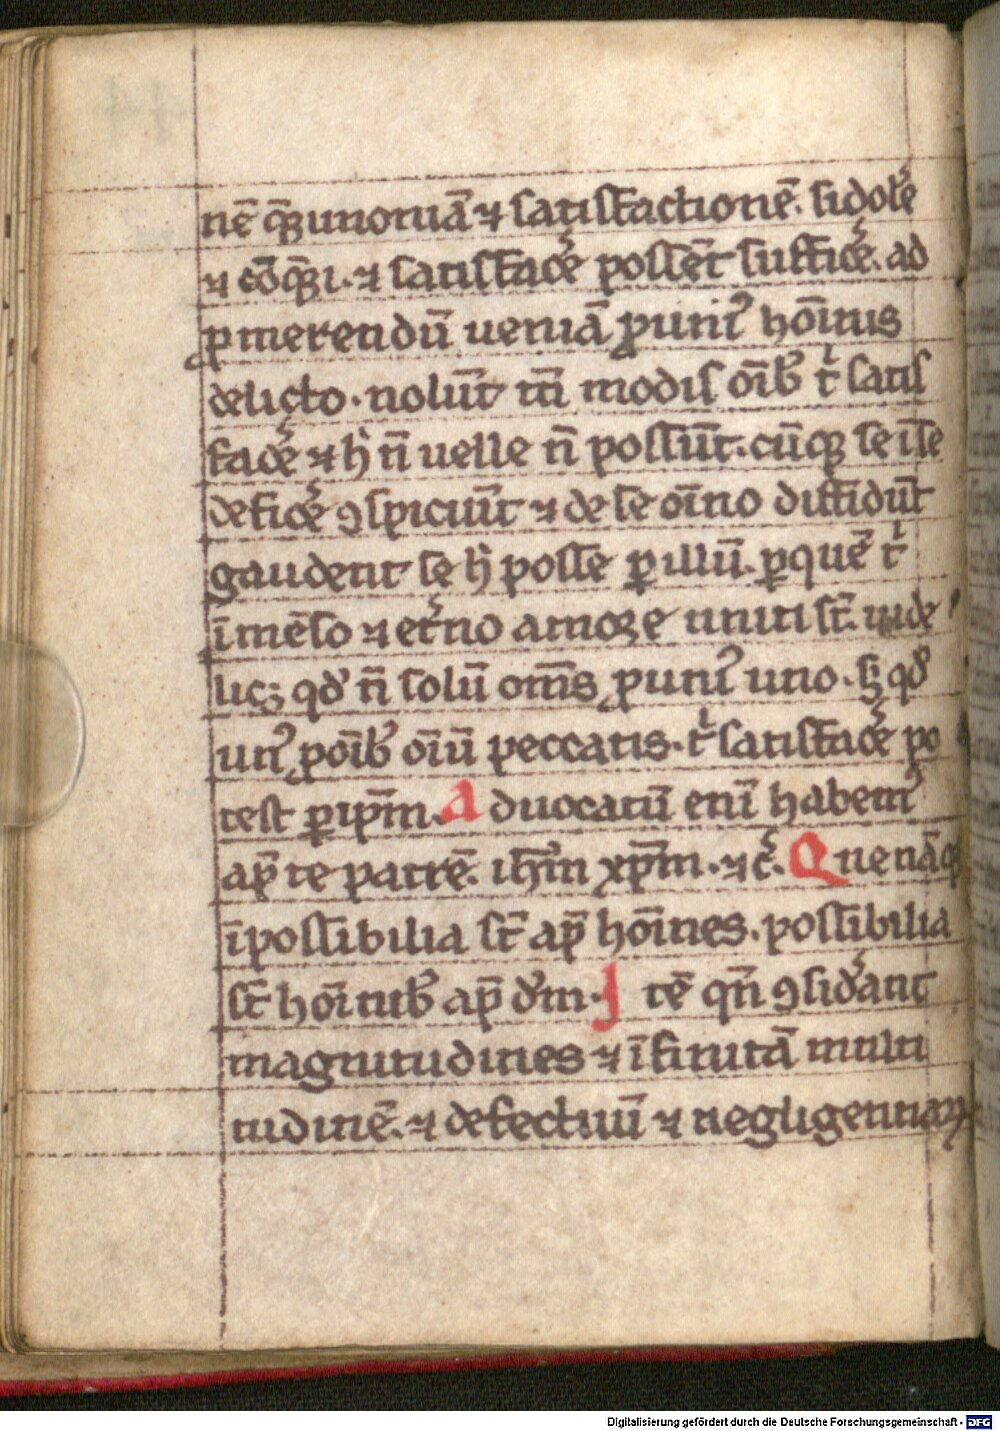 nē q̄ꝝ unoruā ⁊ ſatiſfactionē. ſi dolẽ
⁊ cōq̄ꝝi. ⁊ ſatiſfacẽ poſſēt ſufficẽ. ad
ꝓmerendū ueniā ꝓ uniꝰ hōinis
delicto. nolūt tn̄ modiſ oīb᷒ tͥ ſatiſ
facẽ ⁊ hͥ n̄ uelle n̄ poſſūt. cūqꝫ ſe ī ſe
deficẽ ꝯſpiciūt ⁊ de ſe oīno diffidūt
gaudent ſe hͥ poſſe ꝑ illū. ꝑ quē tͥ
īmēſo ⁊ et̃no amore uniti ſt̄. uide
licꝫ qd̛ n̄ ſolū om̄s ꝓ uniꝰ uno. ſꝫ qd̛
unꝰ ꝓ oīb᷒ oīū peccatis. tͥ ſatiſfacẽ po
test ꝑ ip̄m. Aduocatū enī habemꝰ
apꝰ te patrē. ihm̄ xp̄m. ⁊c̃. Que nāqꝫ
īpoſſibilia ſt̄ ap̄ hōines. poſſibilia
ſt̄ hōinib᷒ ap̄ dm̄. Itē qn̄ ꝯſid̃ant
magnitudines ⁊ īfinitā multi
tudinē. ⁊ defectuū ⁊ negligentiaꝝ
Digitalisierung gefördert durch die Deutsche Forschungsgemeinschaft - DFG